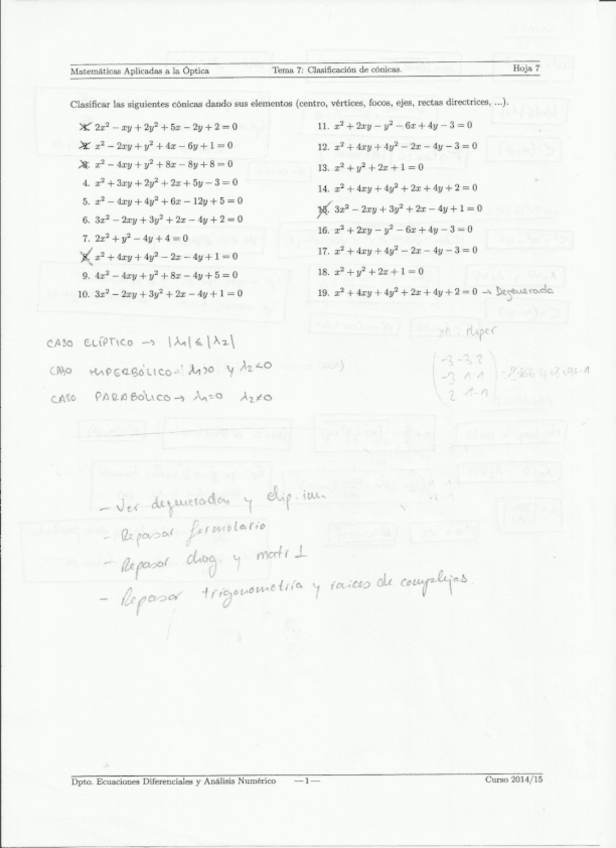 Matemáticas Aplicadas a la Óptica Tema 7: Clasificación de cónicas. Hoja 7
Clasificar las siguientes cónicas dando sus elementos (centro, vértices, focos, ejes, rectas directrices, ...).
1. 2x² − xy + 2y² + 5x − 2y + 2 = 0
2. x² − 2xy + y² + 4x − 6y + 1 = 0
3. x² − 4xy + y² + 8x − 8y + 8 = 0
4. x² + 3xy + 2y² + 2x + 5y − 3 = 0
5. x² − 4xy + 4y² + 6x − 12y + 5 = 0
6. 3x² − 2xy + 3y² + 2x − 4y + 2 = 0
7. 2x² + y² − 4y + 4 = 0
8. x² + 4xy + 4y² − 2x − 4y + 1 = 0
9. 4x² − 4xy + y² + 8x − 4y + 5 = 0
10. 3x² − 2xy + 3y² + 2x − 4y + 1 = 0
11. x² + 2xy − y² − 6x + 4y − 3 = 0
12. x² + 4xy + 4y² − 2x − 4y − 3 = 0
13. x² + y² + 2x + 1 = 0
14. x² + 4xy + 4y² + 2x + 4y + 2 = 0
15. 3x² − 2xy + 3y² + 2x − 4y + 1 = 0
16. x² + 2xy − y² − 6x + 4y − 3 = 0
17. x² + 4xy + 4y² − 2x − 4y − 3 = 0
18. x² + y² + 2x + 1 = 0
19. x² + 4xy + 4y² + 2x + 4y + 2 = 0 → Degenerada
CASO ELÍPTICO → |λ1| ≤ |λ2|
CASO HIPERBÓLICO: λ1>0 y λ2<0
CASO PARABÓLICO → λ1=0 λ2≠0
Hiper
-3 -3 2
-3 1 1
2 1 -1
- Ver degeneradas y elip. im.
- Repasar formulario
- Repasar diag. y matr ⊥
- Repasar trigonometría y raices de complejos.
Dpto. Ecuaciones Diferenciales y Análisis Numérico —1— Curso 2014/15